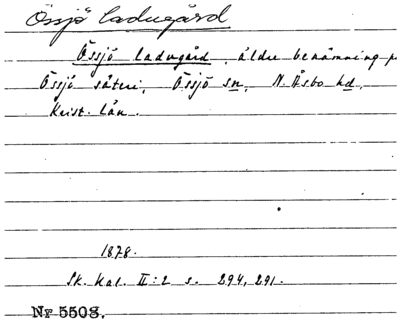 Össjö ladugård
Össjö ladugård, äldre benämning p
Össjö säteri, Össjö sn, N. Åsbo hd,
Krist. län.
1878.
Sk. Kal. II:2 s. 294, 291.
Nr 5508.